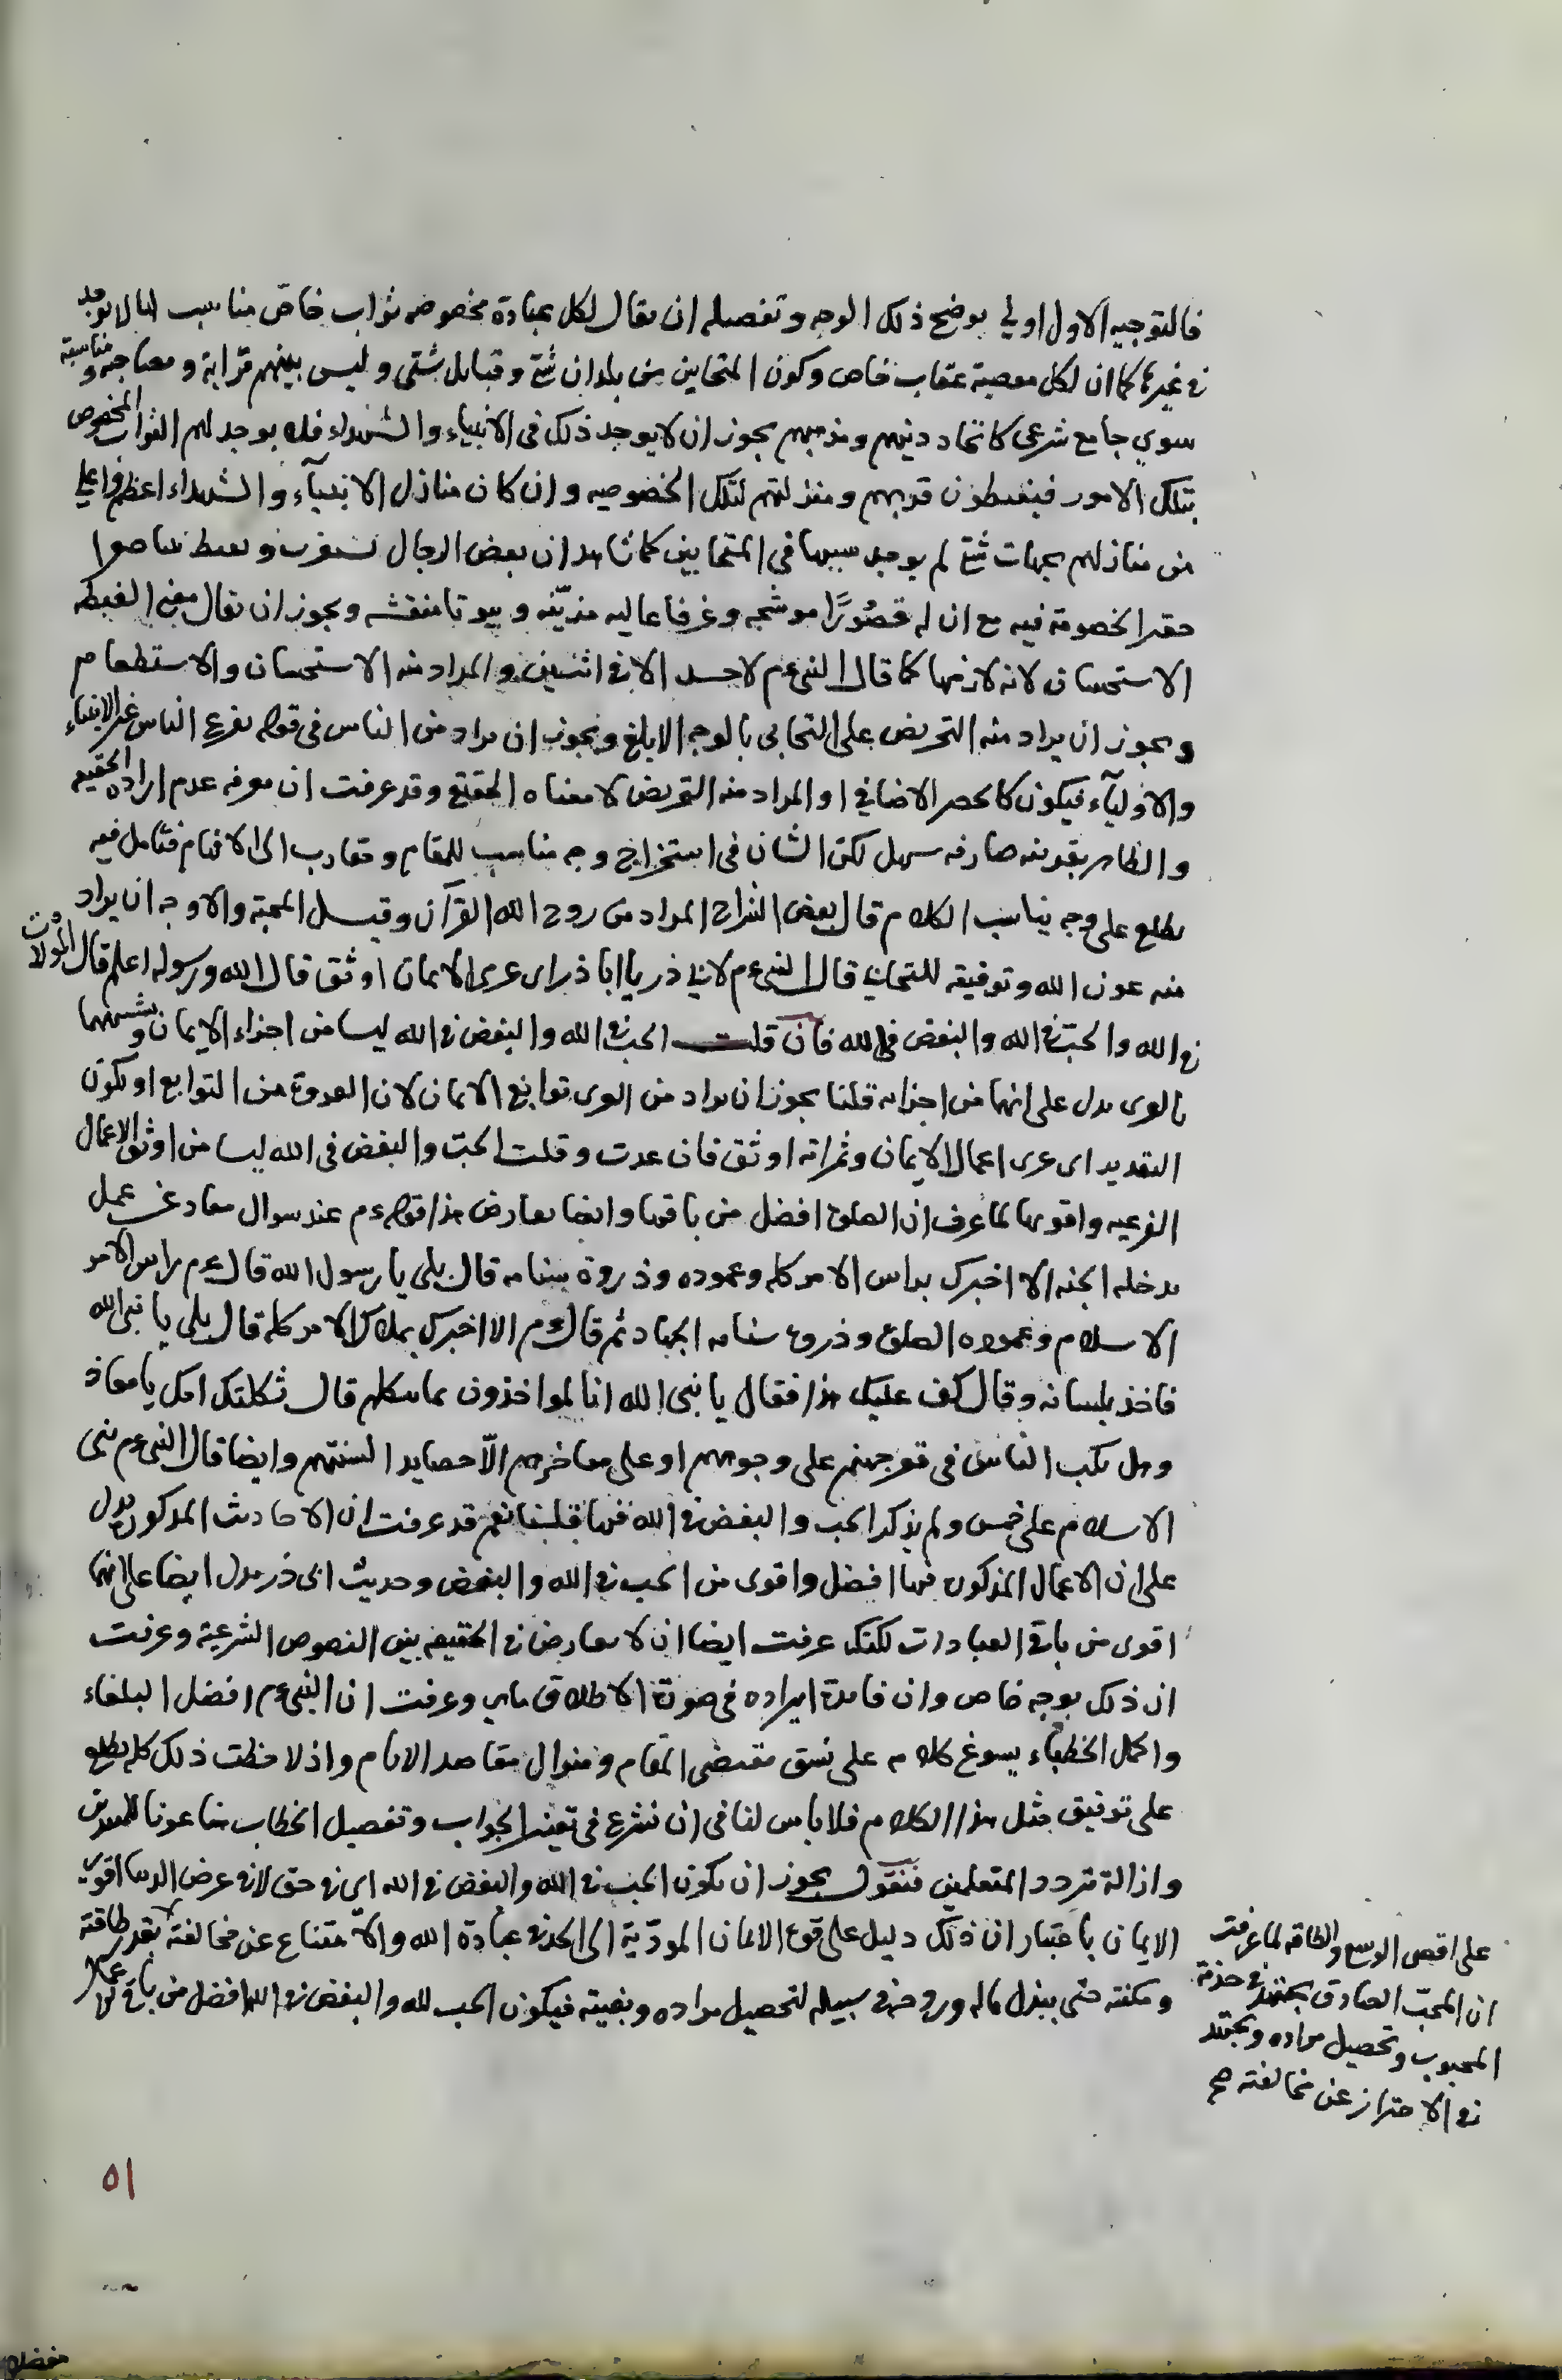 فالتوجيه الاول اولي يوضح ذلك الوجه وتفصيله ان يقال لكل عبادة مخصوصه ثواب خاص مناسب لها لا يوجد
في غيرها كما ان لكل معصية عقاب خاص وكون المتحابين من بلدان شتى وقبايل شتى وليس بينهم قرابة و مناسبة
سوي جامع شرعي كاتحاد دينهم ومذهبهم يجوز ان لا يوجد ذلك في الانبياء والشهداء فلا يوجد لهم الثواب المخصوص
بتلك الامور فيغبطون قربهم ومنزلتهم لتلك الخصوصيه وان كان منازل الانبيآء والشهداء اعظم واعلي
من منازلهم بجهات شتى لم يوجد سببها في المتحابين كما نشاهد ان بعض الرجال
حقيرا لخصومة فيه مع ان له قصُورًا وغرفا عاليه مزيّنه وبيوتا منقشه ويجوز ان يقال معنى الغبطه
الاستحسان لانه لازمها كما قال النبي ءم لا حسد الا في اثنين والمراد منه الاستحسان والاستطعام
ويجوز ان يراد منه التحريض على التحابي بالوجه الابلغ ويجوز ان يراد من الناس في قوله يفزع الناس غير الانبياء
والاوليآء فيكون كالحصر الاضافي او المراد منه التعريض لا معناه الحقيقي وقد عرفت ان معرفه عدم ارادة الحقيقه
والظاهر بقرينه صارفه سهل لكن الشان في استخراج وجه مناسب للمقام ومقارب الى الافهام فتامل فيه
يطلع على وجه يناسب الكلام قال بعض الشراح المراد من روح الله القرآن وقيل المحبة والاوجه ان يراد
منه عون الله وتوفيقه للتحابي قال النبي ءم لابي ذر يا ابا ذر اى عرى الايمان اوثق قال الله ورسوله اعلم قال الموالات
في الله والحب في الله والبغض في الله فان قلت الحب في الله والبغض في الله ليسا من اجزاء الايمان
بالعرى يدل على انهما من اجزائه قلنا يجوز ان يراد من العرى توابع الايمان لان العروة من التوابع او يكون
التقدير اى عرى اعمال الايمان وثمراته اوثق فان عدت وقلت الحب والبغض في الله ليسا من اوثق الاعمال
الفرعيه واقويها لما عرف ان الصلوة افضل من باقيها وايضا يعارض هذا قوله ءم عند سوال معاذ عن عمل
يدخله الجنه الا اخبرك براس الامر كله وعموده وذروة سنامه قال بلى يا رسول الله قال ءم راس الامر
الاسلام وعموده الصلوة وذروة سنامه الجهاد ثم قال ءم الا اخبرك بملاك الامر كله قال بلى يا نبي الله
فاخذ بلسانه وقال كف عليك هذا فقال يا نبي الله انا لمواخذون بما نتكلم قال ثكلتك امك يا معاذ
وهل يكب الناس في قعر جهنم على وجوههم او على مناخرهم الّا حصايد السنتهم وايضا قال النبي ءم بني
الاسلام على خمس ولم يذكر الحب والبغض في الله فيها قلنا نعم قد عرفت ان الاحاديث المذكورة يدل
على ان الاعمال المذكورة فيها افضل واقوى من الحب في الله والبغض وحديث ابي ذر يدل ايضا على انهما
اقوى من باقي العبادات لكنك عرفت ايضا ان لا تعارض في الحقيقه بين النصوص الشرعية وعرفت
ان ذلك بوجه خاص وان فائدة ايراده في صورة الاطلاق وعرفت ان النبي ءم افضل البلغاء
واكمل الخطباء يسوغ كلامه على نسق مقتضى المقام ومنوال مقاصد الانام واذ لاحظت ذلك كله يطلع
على توفيق مثل هذا الكلام فلا باس لنا في ان نشرع في الجواب وتفصيل الخطاب
وازالة تردد المتعلمين فنقول يجوز ان يكون الحب في الله والبغض في الله اى في حق لا في عرض الدنيا اقوى
الايمان باعتبار ان ذلك دليل على قوة الايمان المودّية الى الجد في عبادة الله والامتناع عن مخالفته بقدر طاقته
ومكنته حتى يبذل ماله وروحه في سبيله لتحصيل مراده وبغيته فيكون الحب لله والبغض في الله افضل من باقي
على اقصى الوسع والطاقه لما عرفت
ان المحب الصادق يجتهد في خدمة
المحبوب وتحصيل مراده ويجتهد
في الاحتراز عن مخالفته صح
٥١